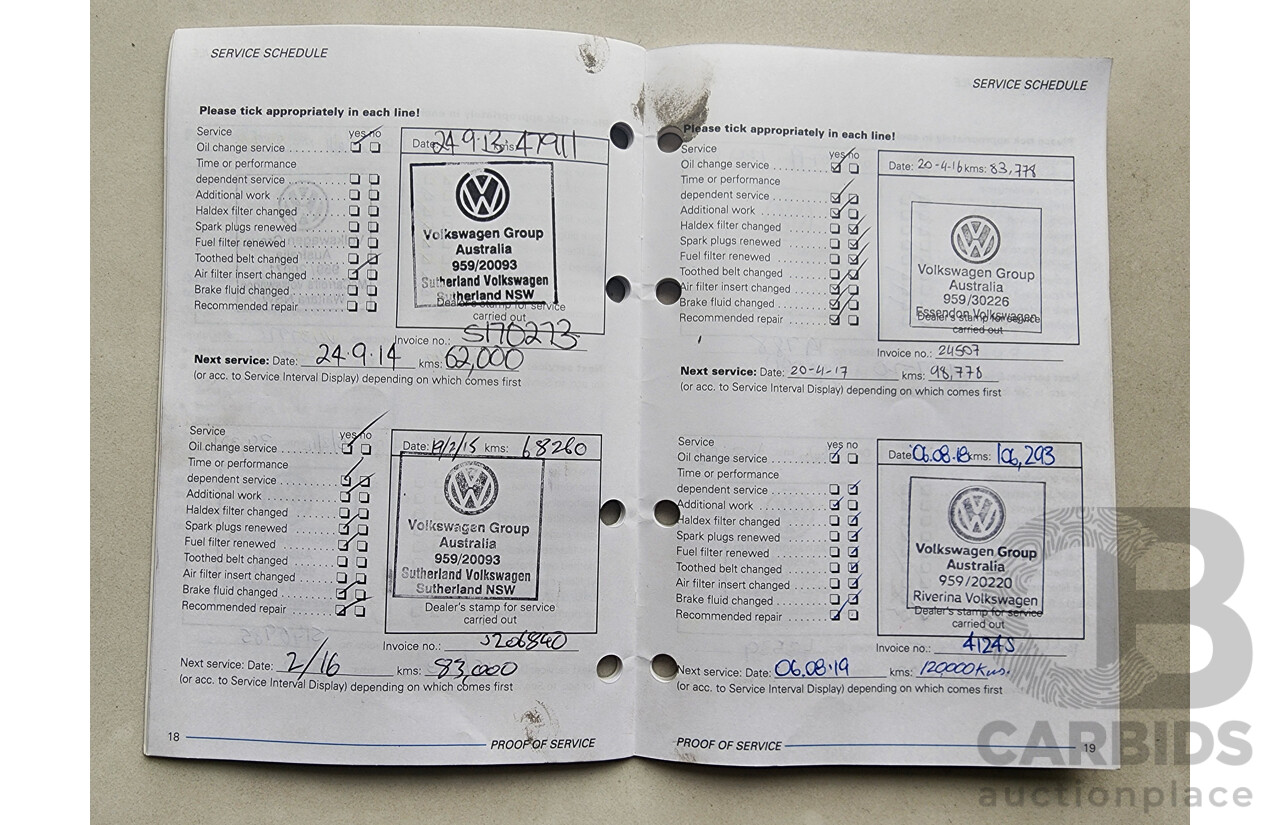 SERVICE SCHEDULE
Please tick appropriately in each line!
Service yes no
Oil change service
Time or performance
dependent service
Additional work
Haldex filter changed
Spark plugs renewed
Fuel filter renewed
Toothed belt changed
Air filter insert changed
Brake fluid changed
Recommended repair
Date: 24.9.13 kms: 47911
Volkswagen Group
Australia
959/20093
Sutherland Volkswagen
Sutherland NSW
Dealer's stamp for service
carried out
Invoice no.: S170273
Next service: Date: 24.9.14 kms: 62,000
(or acc. to Service Interval Display) depending on which comes first
Service yes no
Oil change service
Time or performance
dependent service
Additional work
Haldex filter changed
Spark plugs renewed
Fuel filter renewed
Toothed belt changed
Air filter insert changed
Brake fluid changed
Recommended repair
Date: 19/2/15 kms: 68260
Volkswagen Group
Australia
959/20093
Sutherland Volkswagen
Sutherland NSW
Dealer's stamp for service
carried out
Invoice no.: S206840
Next service: Date: 2/16 kms: 83,000
(or acc. to Service Interval Display) depending on which comes first
18 PROOF OF SERVICE
SERVICE SCHEDULE
Please tick appropriately in each line!
Service yes no
Oil change service
Time or performance
dependent service
Additional work
Haldex filter changed
Spark plugs renewed
Fuel filter renewed
Toothed belt changed
Air filter insert changed
Brake fluid changed
Recommended repair
Date: 20-4-16 kms: 83,778
Volkswagen Group
Australia
959/30226
Essendon Volkswagen
Dealer's stamp for service
carried out
Invoice no.: 24507
Next service: Date: 20-4-17 kms: 98,778
(or acc. to Service Interval Display) depending on which comes first
Service yes no
Oil change service
Time or performance
dependent service
Additional work
Haldex filter changed
Spark plugs renewed
Fuel filter renewed
Toothed belt changed
Air filter insert changed
Brake fluid changed
Recommended repair
Date: 06.08.18 kms: 106,293
Volkswagen Group
Australia
959/20220
Riverina Volkswagen
Dealer's stamp for service
carried out
Invoice no.: 41245
Next service: Date: 06.08.19 kms: 120,000 Kms.
(or acc. to Service Interval Display) depending on which comes first
PROOF OF SERVICE 19
CARBIDS
auctionplace